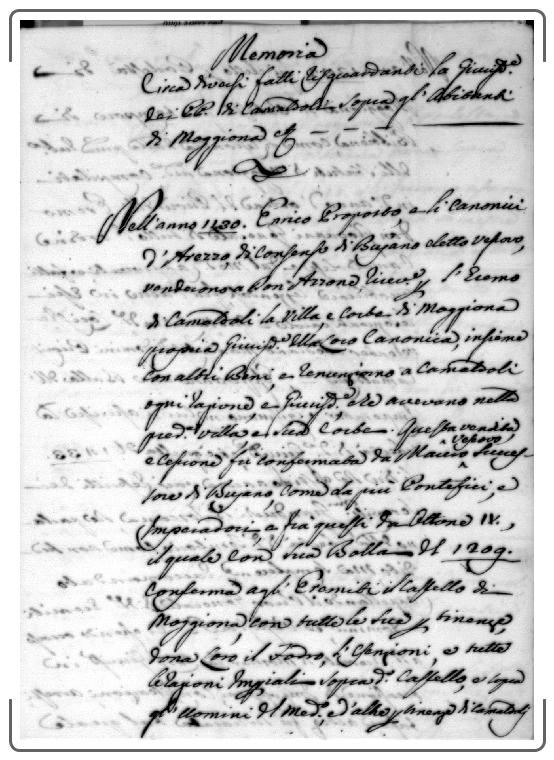 Memoria
Circa diversi fatti risguardanti la Giurisd.e
de' PP. di Camaldoli sopra gl' Abitanti
di Moggiona
Nell'anno 1130. Enrico Proposto e li Canonici
d'Arezzo, di consenso di Bujano eletto Vescovo,
venderono a Don Azzone ricev.e p l'Eremo
di Camaldoli la Villa, e Corte di Moggiona
propria Giurisd.e della loro Canonica, insieme
con altri Beni, e renunziono a Camaldoli
ogni ragione, e Giurisd.e che avevano nella
pred.a villa e sua Corte. Questa vendita,
e Cessione fu confermata da Mauro Vescovo, succes-
sore di Bujano, come da più Pontefici, e
Imperadori, e fra questi da Ottone IV.,
il quale con sua Bolla del 1209.
conferma agl' Eremiti il Castello di
Moggiona con tutte le sue ptinenze,
dona loro il Fodro, l'Esenzioni, e tutte
le ragioni Impiali sopra d.o Castello, e sopra
gl' Uomini del Med.o, e d'altre ptinenze di Camaldoli